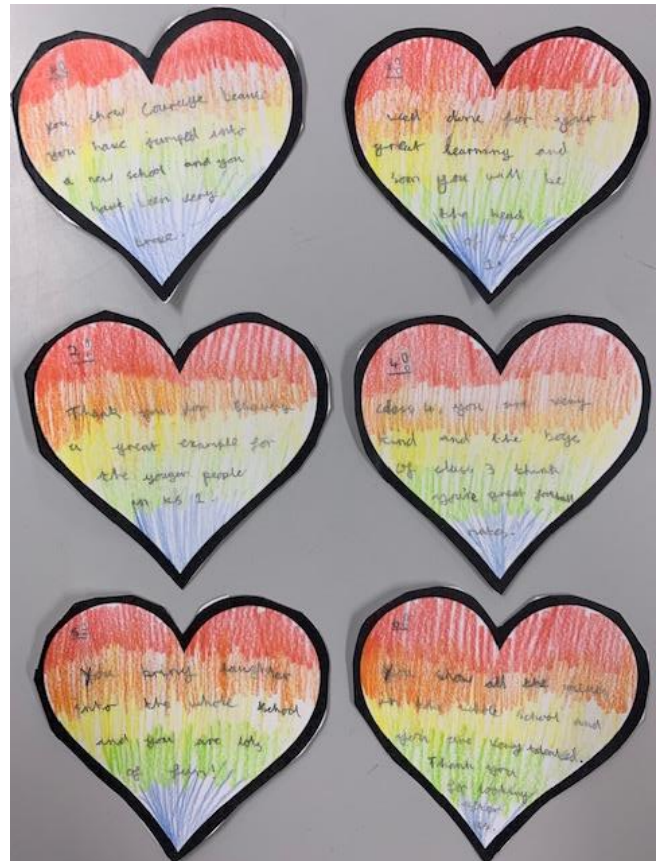 you show Courage beaus
you have jumped into
a new school and you
have been very
brave.
well done for your
great learning and
soon you will be
the head
of KS
1.
2
Thank you for showing
a great example for
the younger people
in KS 1.
4
class 4, you are very
kind and the boys
of class 3 think
you're great football
mates.
You bring laughter
into the whole school
and you are lots
of fun!
You show all the values
in the whole school and
you are very talented.
Thank you
for looking
after
us.